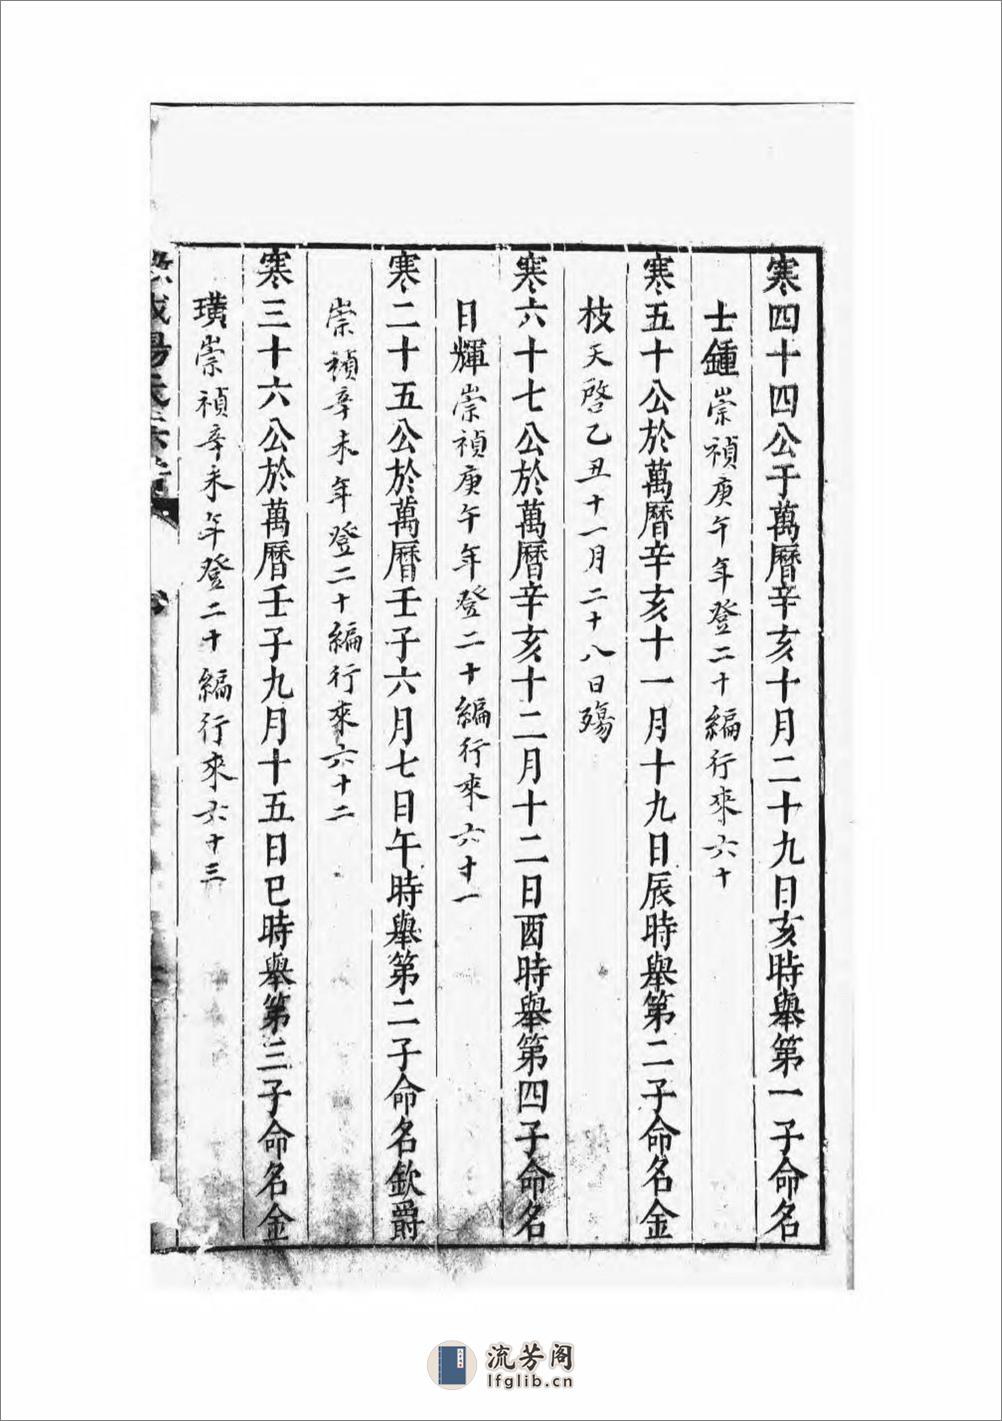 寒四十四公于萬曆辛亥十月二十九日亥時舉第一子命名
士鍾崇禎庚午年登二十編行來六十
寒五十公於萬曆辛亥十一月十九日辰時舉第二子命名金
枝天啓乙丑十一月二十八日殤
寒六十七公於萬曆辛亥十二月十二日酉時舉第四子命名
日輝崇禎庚午年登二十編行來六十一
寒二十五公於萬曆壬子六月七日午時舉第二子命名欽爵
崇禎辛未年登二十編行來六十二
寒三十六公於萬曆壬子九月十五日巳時舉第三子命名金
璜崇禎辛未年登二十編行來六十三
流芳阁
lfglib.cn